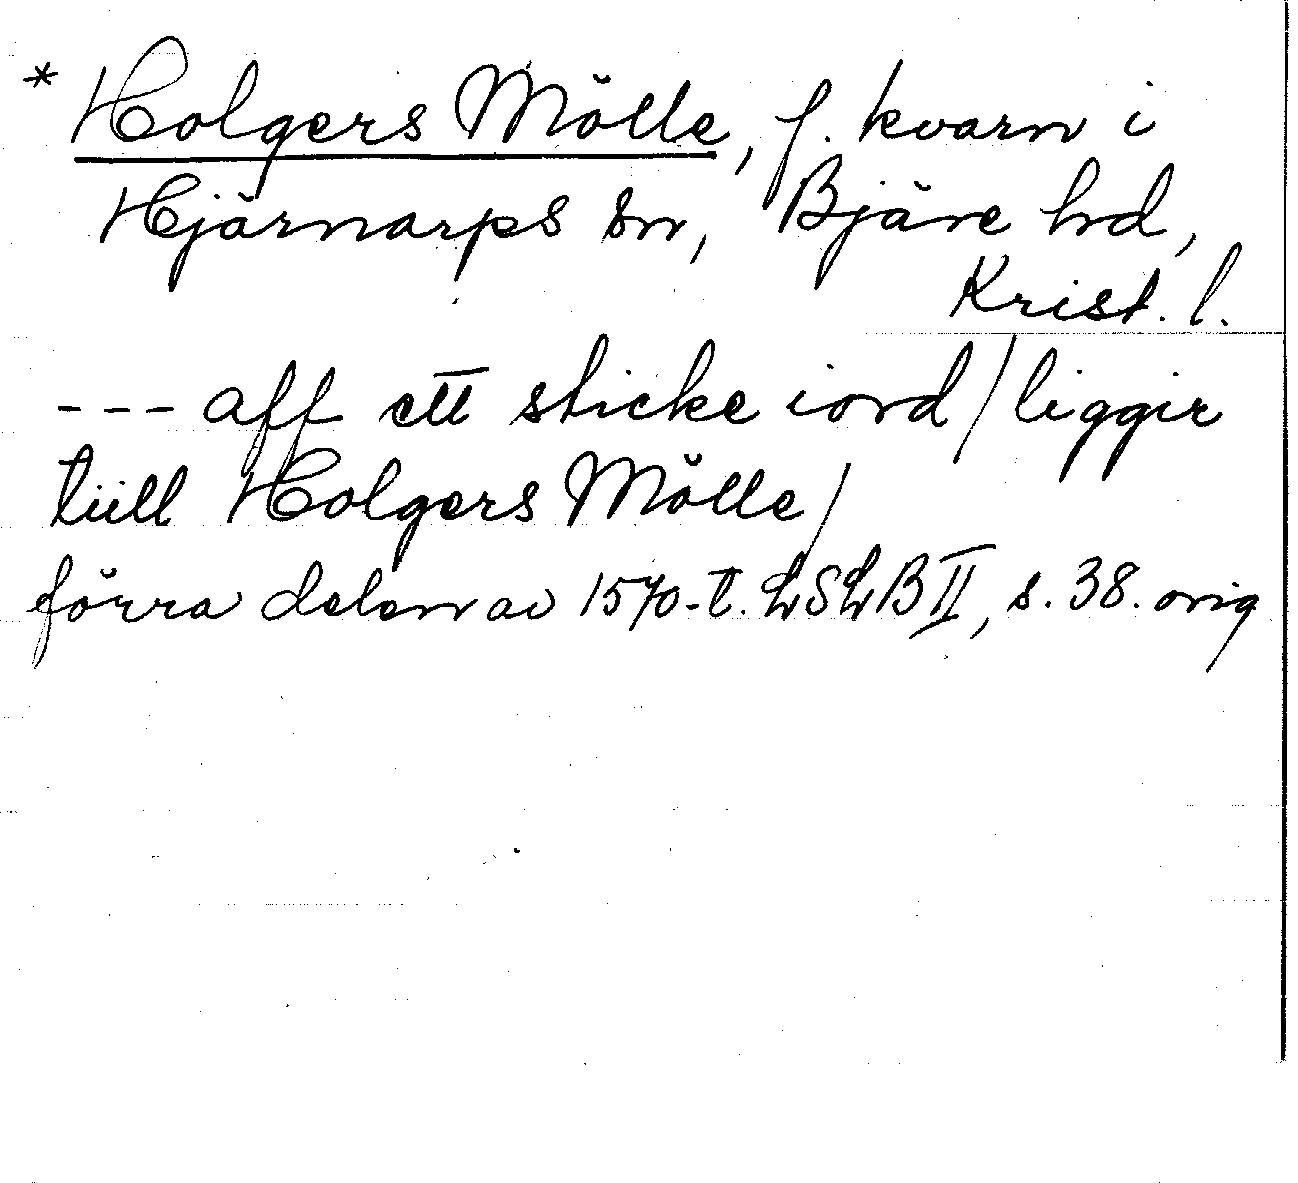 * Holgers Mölle, f. kvarn i
Hjärnarps sn, Bjäre hd,
Krist. l.
--- aff ett sticke iord / liggir
tiill Holgers Mölle /
förra delen av 1570-t. LSLB II, s. 38. orig